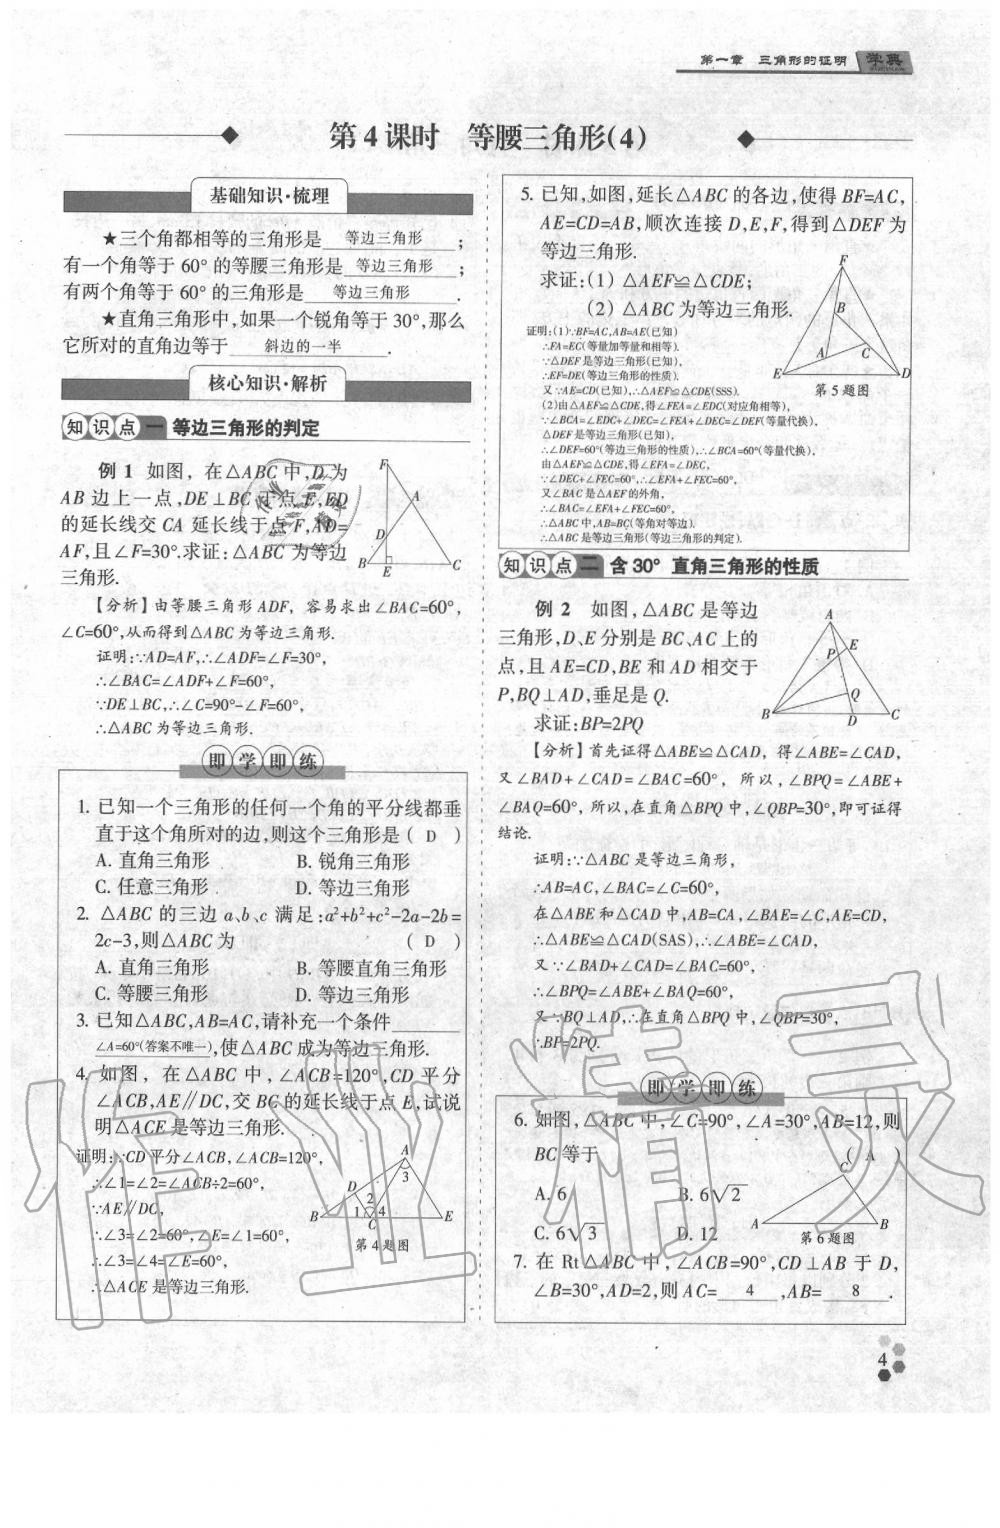 第一章 三角形的证明 学典
第4课时 等腰三角形(4)
基础知识·梳理
★三个角都相等的三角形是 等边三角形 ;
有一个角等于 60° 的等腰三角形是 等边三角形 ;
有两个角等于 60° 的三角形是 等边三角形 .
★直角三角形中,如果一个锐角等于 30°,那么
它所对的直角边等于 斜边的一半 .
核心知识·解析
知识点一 等边三角形的判定
例 1 如图, 在△ABC 中,D 为
AB 边上一点,DE⊥BC 于点 E,ED
的延长线交 CA 延长线于点 F,AD=
AF,且∠F=30°.求证:△ABC 为等边
三角形.
F
A
D
B
E
C
【分析】由等腰三角形 ADF, 容易求出∠BAC=60°,
∠C=60°,从而得到△ABC 为等边三角形.
证明:∵AD=AF,∴∠ADF=∠F=30°,
∴∠BAC=∠ADF+∠F=60°,
∵DE⊥BC,∴∠C=90°-∠F=60°,
∴△ABC 为等边三角形.
即学即练
1. 已知一个三角形的任何一个角的平分线都垂
直于这个角所对的边,则这个三角形是 ( D )
A. 直角三角形 B. 锐角三角形
C. 任意三角形 D. 等边三角形
2. △ABC 的三边 a、b、c 满足:a²+b²+c²-2a-2b=
2c-3,则△ABC 为 ( D )
A. 直角三角形 B. 等腰直角三角形
C. 等腰三角形 D. 等边三角形
3. 已知△ABC,AB=AC,请补充一个条件
∠A=60°(答案不唯一),使△ABC 成为等边三角形.
4. 如图, 在△ABC 中,∠ACB=120°,CD 平分
∠ACB,AE∥DC,交 BC 的延长线于点 E,试说
明△ACE 是等边三角形.
证明:∵CD 平分∠ACB,∠ACB=120°,
∴∠1=∠2=∠ACB÷2=60°,
∵AE∥DC,
∴∠3=∠2=60°,∠E=∠1=60°,
∴∠3=∠4=∠E=60°,
∴△ACE 是等边三角形.
A
3
D
2
1 4
B
C
E
第 4 题图
5. 已知,如图,延长△ABC 的各边,使得 BF=AC,
AE=CD=AB,顺次连接 D,E,F,得到△DEF 为
等边三角形.
求证:(1) △AEF≌△CDE;
(2) △ABC 为等边三角形.
证明:(1)∵BF=AC,AB=AE(已知)
∴FA=EC(等量加等量和相等).
∵△DEF 是等边三角形(已知),
∴EF=DE(等边三角形的性质).
又∵AE=CD(已知),∴△AEF≌△CDE(SSS).
(2)由△AEF≌△CDE,得∠FEA=∠EDC(对应角相等),
∵∠BCA=∠EDC+∠DEC=∠FEA+∠DEC=∠DEF(等量代换),
△DEF 是等边三角形(已知),
∴∠DEF=60°(等边三角形的性质),∴∠BCA=60°(等量代换),
由△AEF≌△CDE,得∠EFA=∠DEC,
∵∠DEC+∠FEC=60°,∴∠EFA+∠FEC=60°,
又∠BAC 是△AEF 的外角,
∴∠BAC=∠EFA+∠FEC=60°,
∴△ABC 中,AB=BC(等角对等边).
∴△ABC 是等边三角形(等边三角形的判定).
F
B
A
C
E
D
第 5 题图
知识点二 含 30° 直角三角形的性质
例 2 如图,△ABC 是等边
三角形,D、E 分别是 BC、AC 上的
点,且 AE=CD,BE 和 AD 相交于
P,BQ⊥AD,垂足是 Q.
求证:BP=2PQ
A
P
E
Q
B
D
C
【分析】首先证得△ABE≌△CAD, 得∠ABE=∠CAD,
又∠BAD+∠CAD=∠BAC=60°, 所以,∠BPQ=∠ABE+
∠BAQ=60°,所以,在直角△BPQ 中,∠QBP=30°,即可证得
结论.
证明:∵△ABC 是等边三角形,
∴AB=AC,∠BAC=∠C=60°,
在△ABE 和△CAD 中,AB=CA,∠BAE=∠C,AE=CD,
∴△ABE≌△CAD(SAS),∴∠ABE=∠CAD,
又∵∠BAD+∠CAD=∠BAC=60°,
∴∠BPQ=∠ABE+∠BAQ=60°,
又∵BQ⊥AD,∴在直角△BPQ 中,∠QBP=30°,
∴BP=2PQ.
即学即练
6. 如图,△ABC 中,∠C=90°,∠A=30°,AB=12,则
BC 等于 ( A )
A. 6 B. 6√2
C. 6√3 D. 12
C
A
B
第 6 题图
7. 在 Rt△ABC 中,∠ACB=90°,CD⊥AB 于 D,
∠B=30°,AD=2,则 AC= 4 ,AB= 8 .
4
作业精灵